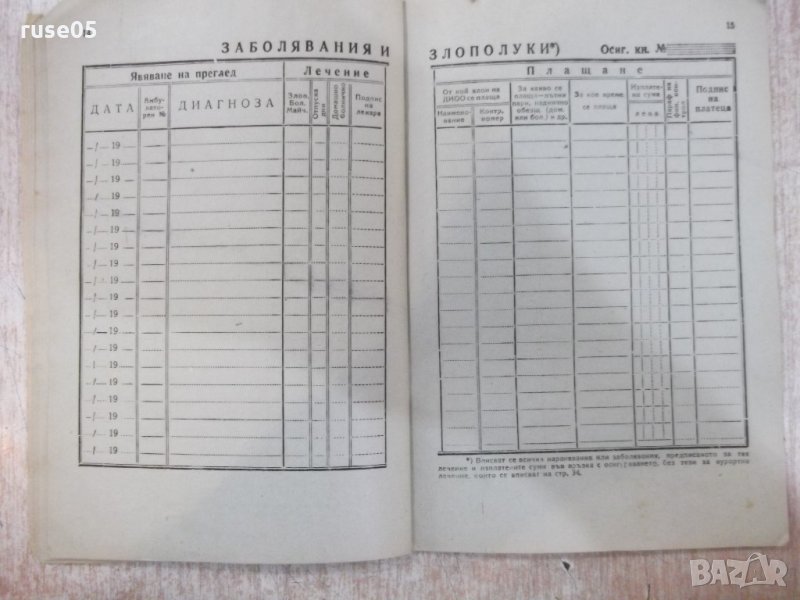 ruse05
15
ЗАБОЛЯВАНИЯ И ЗЛОПОЛУКИ*) Осиг. кн. №
Явяване на преглед
Лечение
ДАТА
Амбу-
лато-
рен №
ДИАГНОЗА
Злоп.
Бол.
Майч.
Отпуска
дни
Домашно
болнично
Подпис
на
лекаря
Плащане
От кой клон на
ДИОО се плаща
Наимено-
вание
Контр.
номер
За какво се
плаща—пътни
пари, надницно
обезщ. (дом.
или бол.) и др.
За кое време
се плаща
Изплате-
ни суми
лева
Параф на
фин. кон-
трол
Подпис
на
платеца
–/–19
–/–19
–/–19
–/–19
–/–19
–/–19
–/–19
–/–19
–/–19
–/–19
–/–19
–/–19
–/–19
–/–19
–/–19
–/–19
–/–19
–/–19
–/–19
*) Вписват се всички наранявания или заболявания, предписаното за тях
лечение и изплатените суми във връзка с осигуряването, без тези за курортно
лечение, които се вписват на стр. 34.
BAZAR
bg